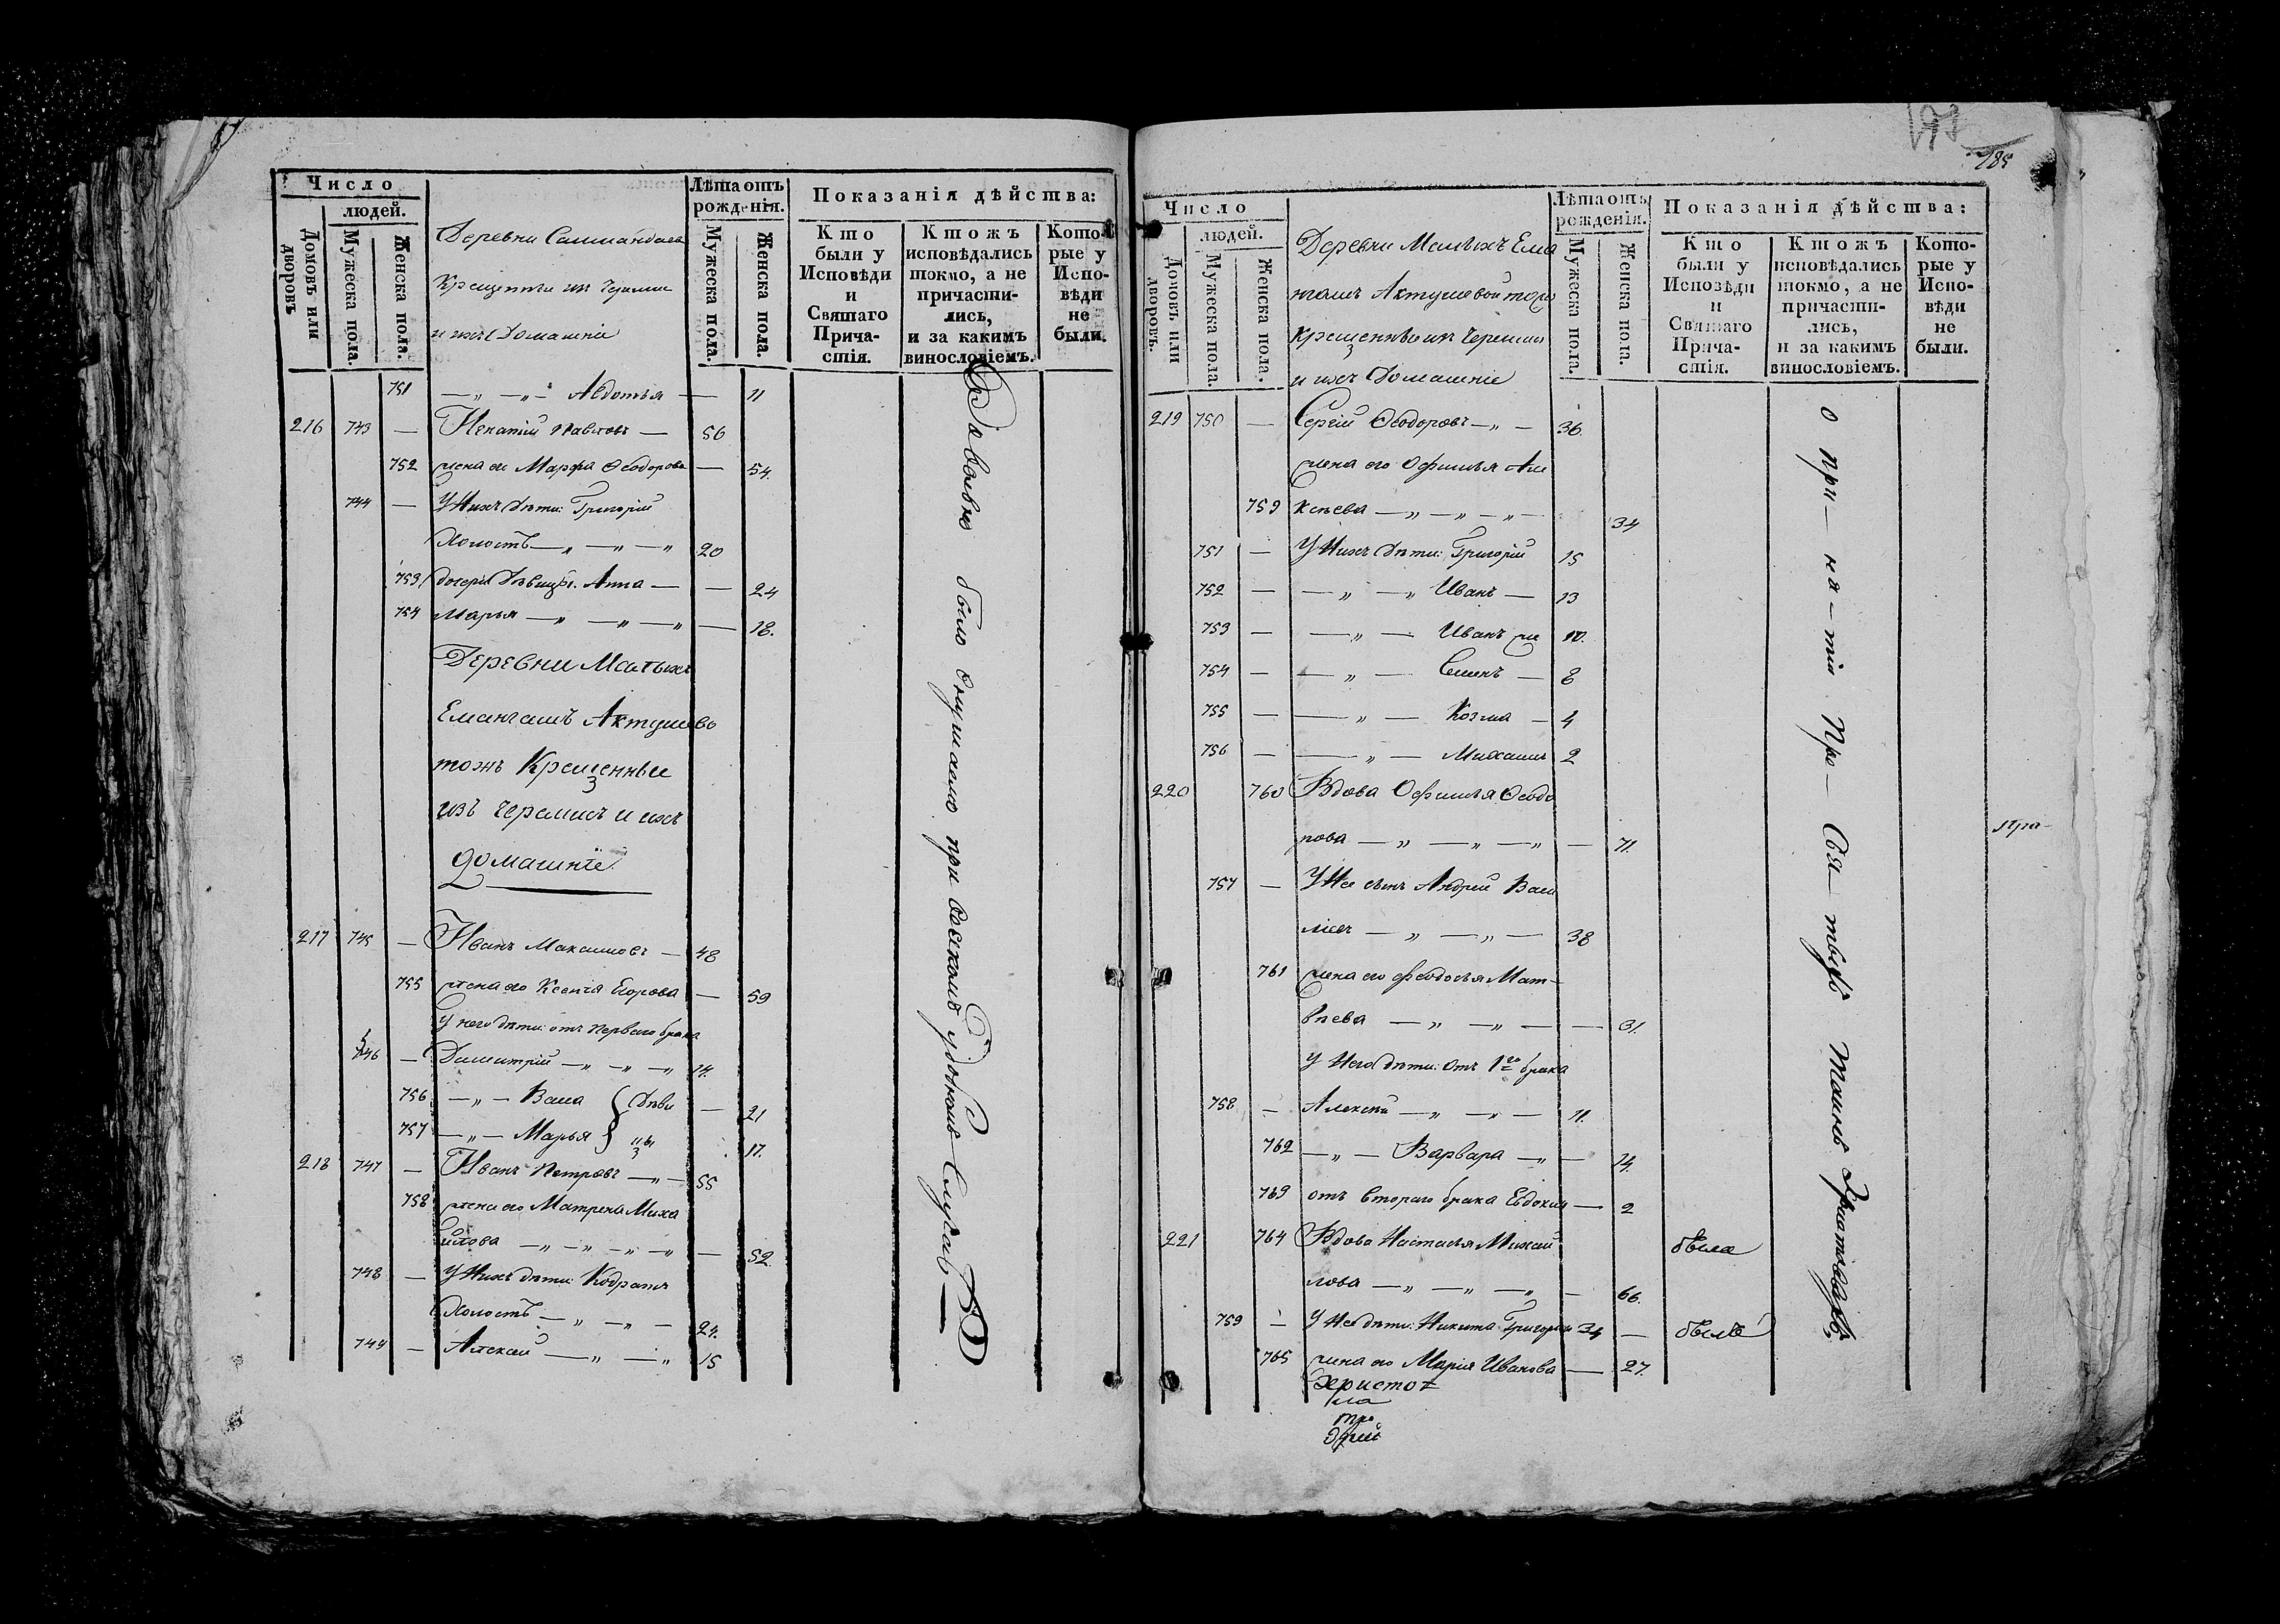 Число
людей.
Домовъ или дворовъ
Мужеска пола.
Женска пола.
Деревни
Крещенныи изъ Черемис
и ихъ Домашніе
Лѣта отъ
рожденія.
Мужеска пола.
Женска пола.
Показанія дѣйства:
Кто
были у
Исповѣди
и
Святаго
Прича-
стія.
Ктожъ
исповѣдались
токмо, а не
причасти-
лись,
и за какимъ
винословіемъ.
Кото-
рые у
Испо-
вѣди
не
были.
751 —„ —„— Авдотья — 11
216 743 — Игнатій Павловъ — 56
752 жена его Марфа Ѳеодорова — 54.
744 — У Нихъ дѣти: Григорій
Холостъ —„ —„ —„ 20
753 дочери дѣвицы. Анна — — 24
754 Марья —„ —„ —„ — 18.
Деревни Малыхъ
Емангашъ Актушево
тожъ Крещенныи
изъ Черемисъ и ихъ
домашніе
217 745 — Иванъ Максимовъ — 48
755 жена его Ксенія Егорова — 59
У него дѣти: отъ перваго брака
746 — Димитрій —„ —„ —„ 14.
756 —„— Васса } Дѣви — 21
757 —„— Марья } цы 17.
218 747 — Иванъ Петровъ —„— 55
758 жена его Матрена Миха
илова —„ —„ —„ —„ — 52.
748 — У Нихъ дѣти: Кодратъ
Холостъ —„ —„ — 24.
749 — Алексей —„ —„ 15
было внушаемо при всякомъ удобномъ Случаѣ
185
Число
людей.
Домовъ или дворовъ.
Мужеска пола.
Женска пола.
Деревни Малыхъ Ема
нгашъ Актушевой тожъ
Крещенныи изъ Черемис
и ихъ Домашніе
Лѣта отъ
рожденія.
Мужеска пола.
Женска пола.
Показанія дѣйства:
Кто
были у
Исповѣди
и
Святаго
Прича-
стія.
Ктожъ
исповѣдались
токмо, а не
причасти-
лись,
и за какимъ
винословіемъ.
Кото-
рые у
Испо-
вѣди
не
были.
219 750 — Сергій Ѳеодоровъ —„ — 36
жена его Офимья Але
759 ксѣева —„ —„ —„— 34
751 — У Нихъ дѣти: Григорій 15
752 — —„ —„ Иванъ — 13
753 — —„ — Иванъ же 10.
754 — —„ — Семенъ — 8
755 — —„ — Козма — 4
756 — —„ — Михаилъ 2
220 760 Вдова Офимья Ѳеодо
рова —„ —„ —„ — 71.
757 — У Нее сынъ Андрей Васи
льевъ —„ —„ — 38
761 жена его Ѳеодосья Мат-
вѣева —„ —„ — — 31.
У Него дѣти: Отъ 1го брака
758 — Алексѣй —„ —„ — 11.
762 —„ — Варвара —„ — 14.
763 отъ втораго брака Евдокия — 2
221 764 Вдова Настасья Михай была
лова —„ —„ —„ — 66.
759 — У Нее дѣти: Никита Григорьевъ 34 — былъ
765 жена его Марія Иванова — 27.
о при — ня — тіи Пре — Свя — тыхъ Таинъ